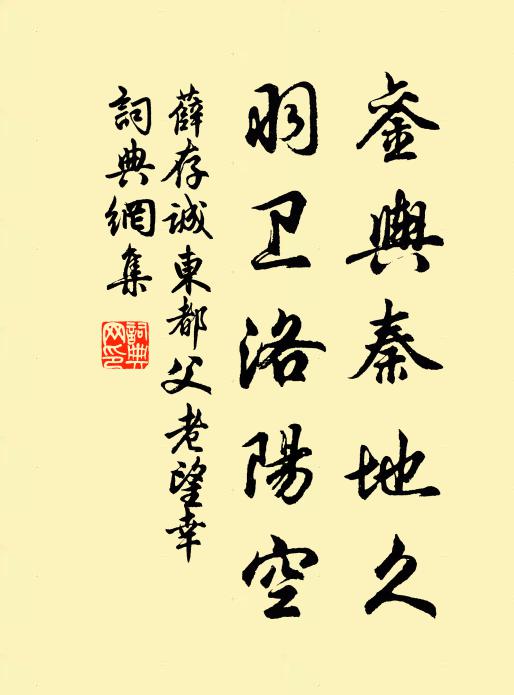 銮輿秦地久
羽卫洛陽空
薛存诚東都父老望幸
詞典網集
詞典
网印